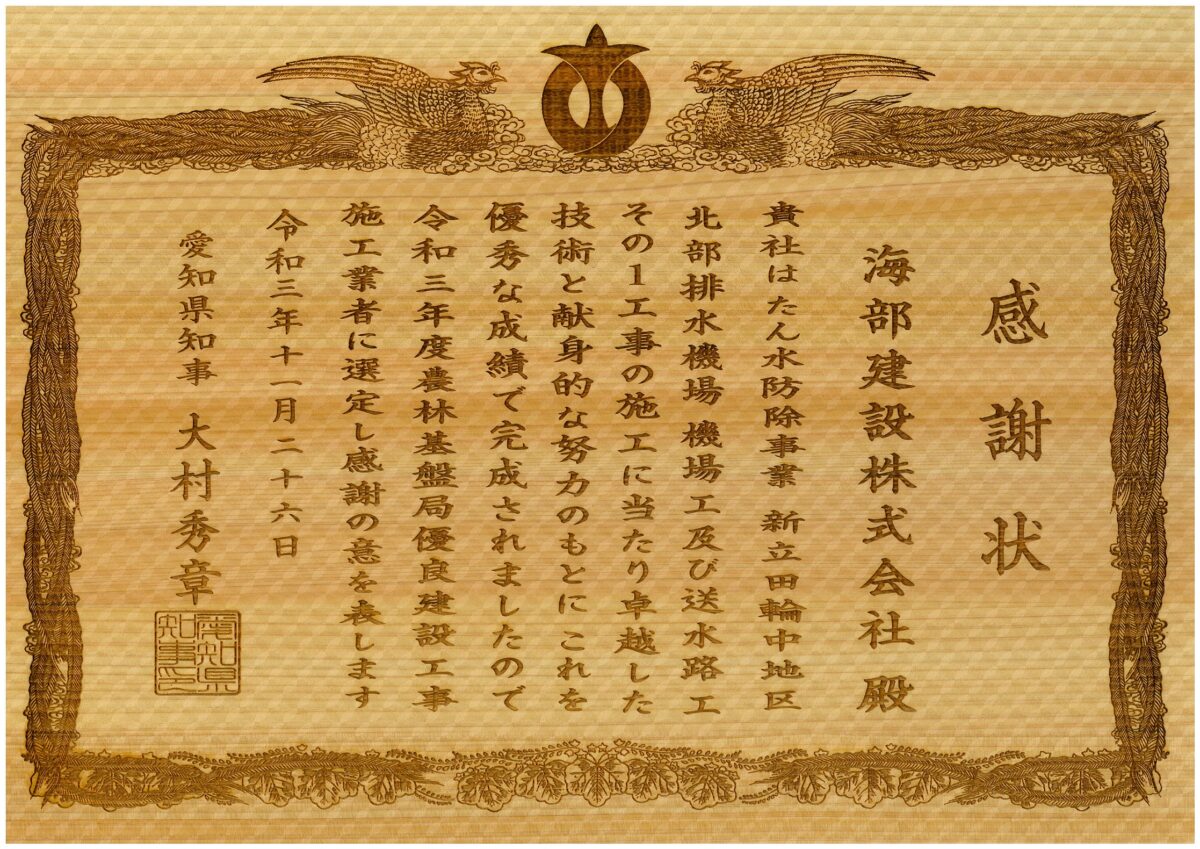 感謝状
海部建設株式会社 殿
貴社はたん水防除事業 新立田輪中地区
北部排水機場 機場工及び送水路工
その1工事の施工に当たり卓越した
技術と献身的な努力のもとにこれを
優秀な成績で完成されましたので
令和三年度農林基盤局優良建設工事
施工業者に選定し感謝の意を表します
令和三年十一月二十六日
愛知県知事 大村秀章
愛知県
知事之印